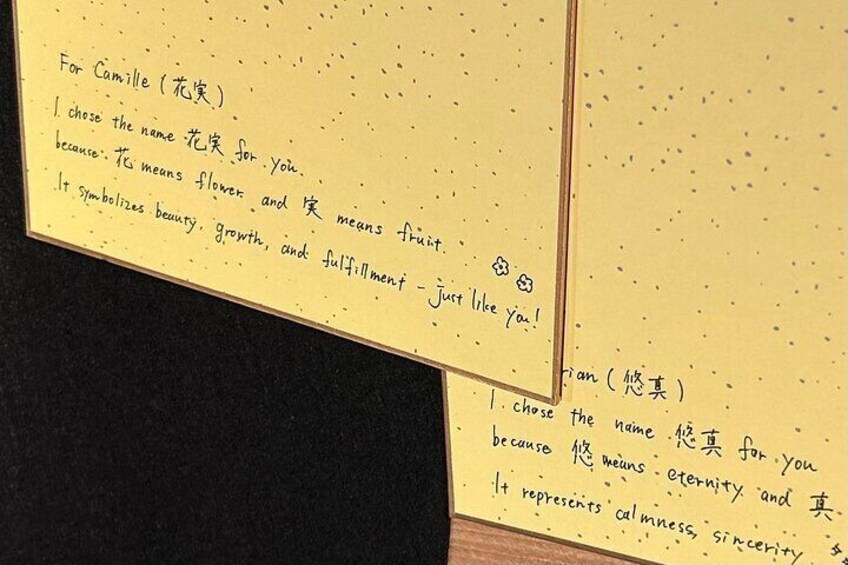 For Camille (花実)
I chose the name 花実 for you
because 花 means flower and 実 means fruit.
It symbolizes beauty, growth, and fulfillment - just like you!
rian (悠真)
I chose the name 悠真 for you
because 悠 means eternity and 真
It represents calmness, sincerity